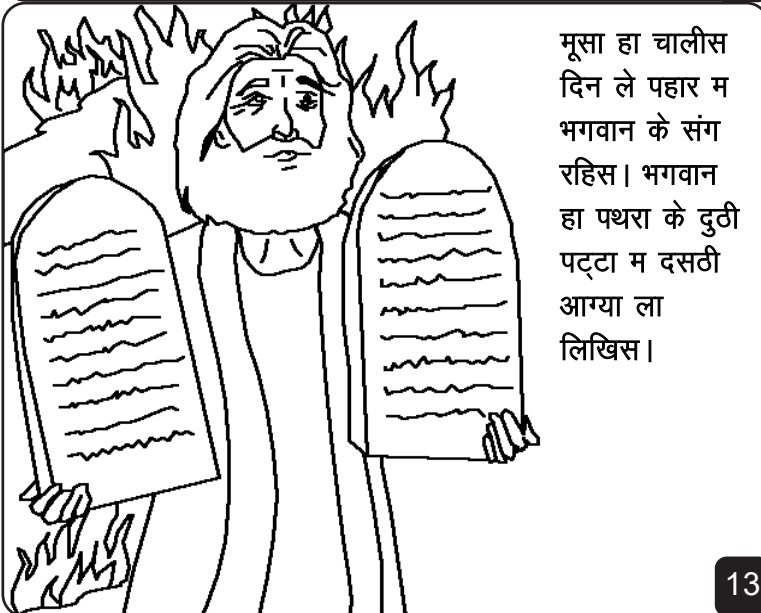 मूसा हा चालीस
दिन ले पहार म
भगवान के संग
रहिस। भगवान
हा पथरा के दुठी
पट्टा म दसठी
आग्या ला
लिखिस।
13